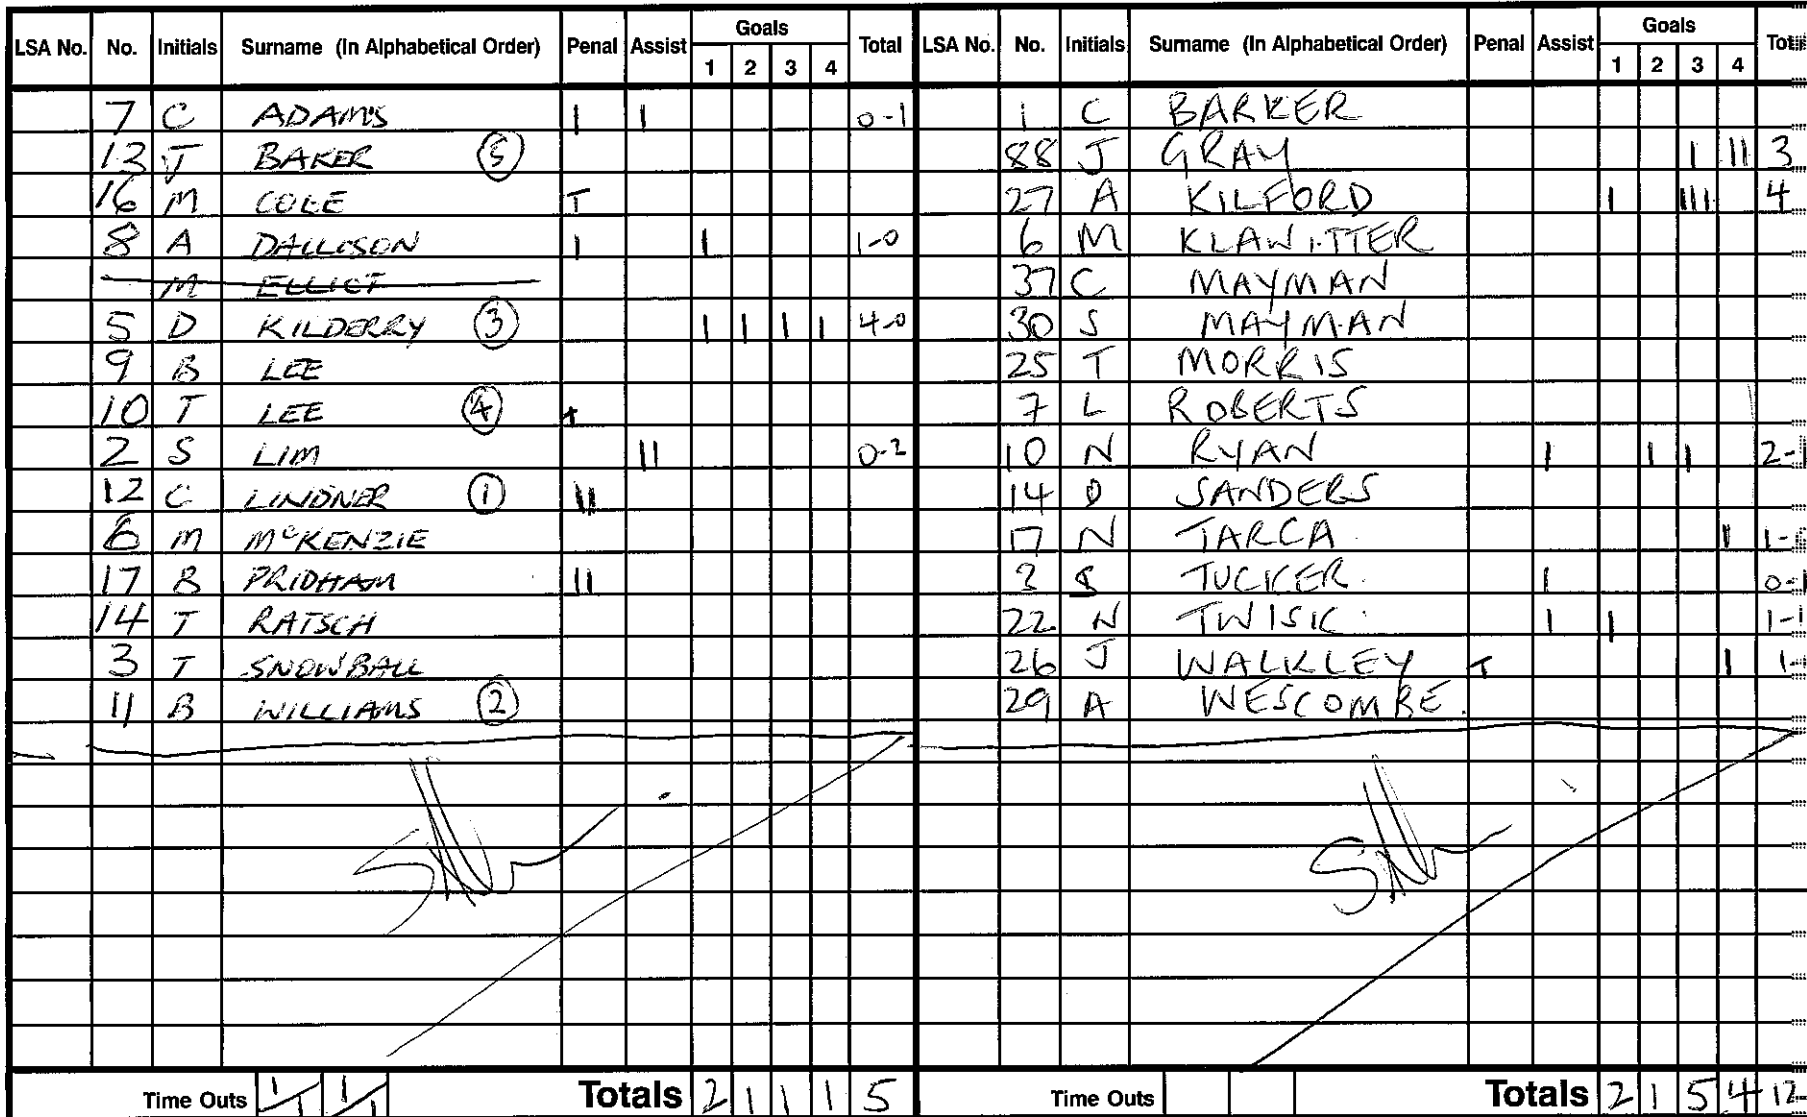 LSA No. No. Initials Surname (In Alphabetical Order) Penal Assist Goals 1 2 3 4 Total
7 C ADAMS I I 0-1
13 J BAKER (5)
16 M COLE T
8 A DALLISON I I 1-0
M ELLIOT
5 D KILDERRY (3) I I I I 4-0
9 B LEE
10 T LEE (4) +
2 S LIM II 0-2
12 C LINDNER (1) II
6 M McKENZIE
17 B PRIDHAM II
14 T RATSCH
3 T SNOWBALL
11 B WILLIAMS (2)
Time Outs 1/1 1/1 Totals 2 1 1 1 5
LSA No. No. Initials Surname (In Alphabetical Order) Penal Assist Goals 1 2 3 4
1 C BARKER
88 J GRAY I II 3
27 A KILFORD I III 4
6 M KLAWITTER
37 C MAYMAN
30 S MAYMAN
25 T MORRIS
7 L ROBERTS
10 N RYAN I I I 2-1
14 D SANDERS
17 N TARCA I 1-
3 S TUCKER I 0-1
22 N TWISK I I 1-1
26 J WALKLEY T I 1-
29 A WESCOMBE.
Time Outs Totals 2 1 5 4 12-